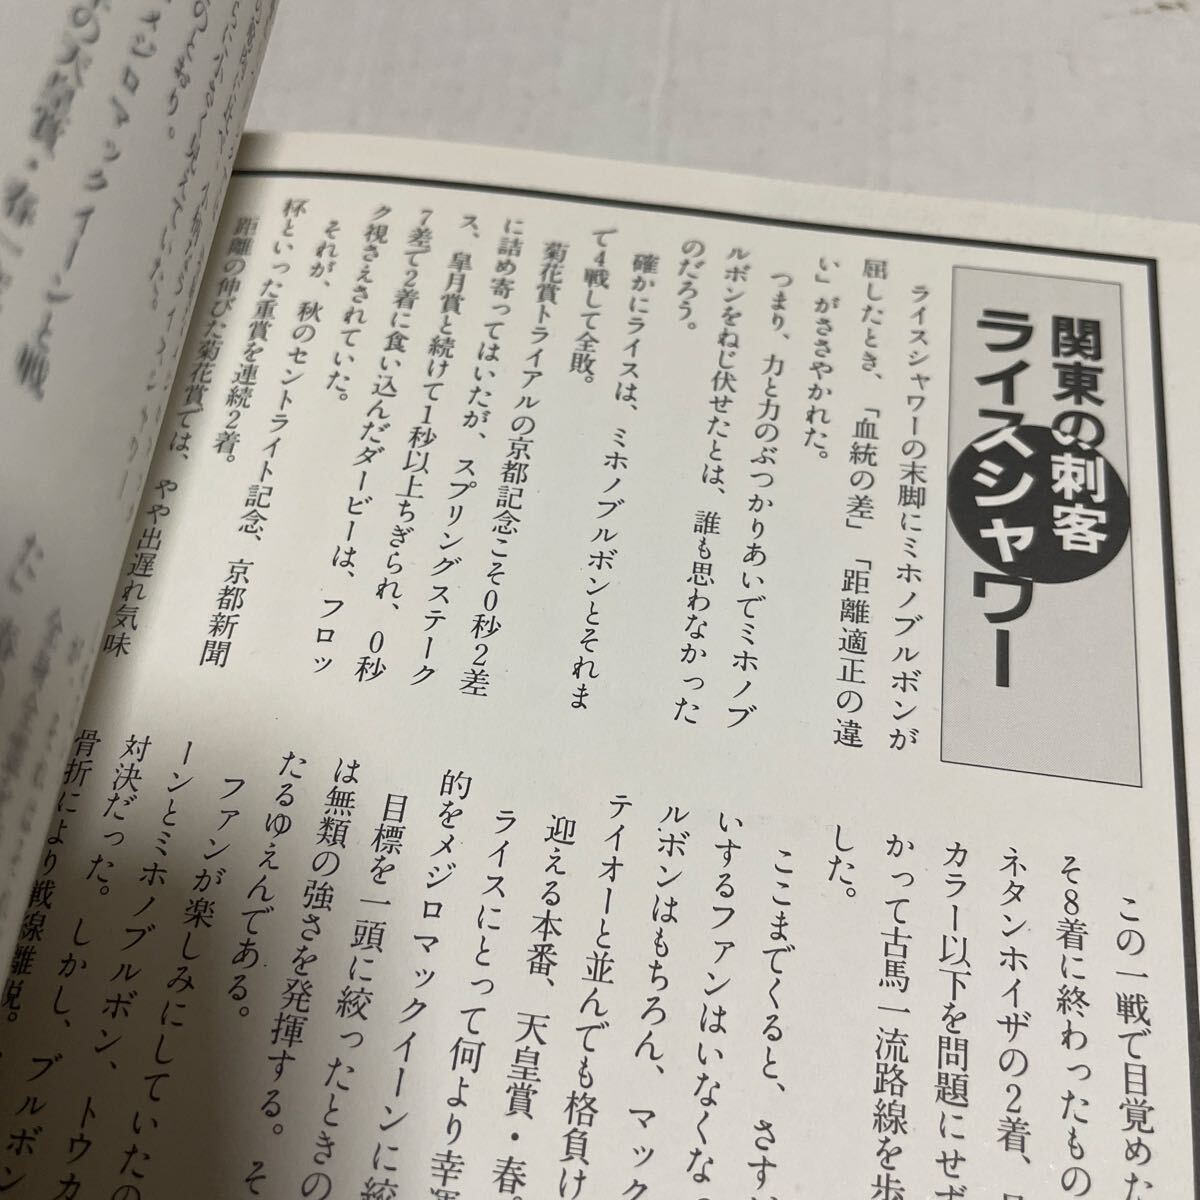 関東の刺客
ライスシャワー
ライスシャワーの末脚にミホノブルボンが
屈したとき、「血統の差」「距離適正の違
い」がささやかれた。
つまり、力と力のぶつかりあいでミホノブ
ルボンをねじ伏せたとは、誰も思わなかった
のだろう。
確かにライスは、ミホノブルボンとそれま
で4戦して全敗。
菊花賞トライアルの京都記念こそ0秒2差
に詰め寄ってはいたが、スプリングステーク
ス、皐月賞と続けて1秒以上ちぎられ、0秒
7差で2着に食い込んだダービーは、フロッ
ク視さえされていた。
それが、秋のセントライト記念、京都新聞
杯といった重賞を連続2着。
距離の伸びた菊花賞では、やや出遅れ気味
この一戦で目覚めた
そ8着に終わったもの
ネタンホイザの2着、
カラー以下を問題にせず
かって古馬一流路線を歩
した。
ここまでくると、さす
いするファンはいなくな
ルボンはもちろん、マック
テイオーと並んでも格負け
迎える本番、天皇賞・春。
ライスにとって何より幸運
的をメジロマックイーンに絞
目標を一頭に絞ったときの
は無類の強さを発揮する。そ
たるゆえんである。
ファンが楽しみにしていたの
ーンとミホノブルボン、トウカ
対決だった。しかし、ブルボン
骨折により戦線離脱。
メジロマックイーンと戦
の天皇賞・春